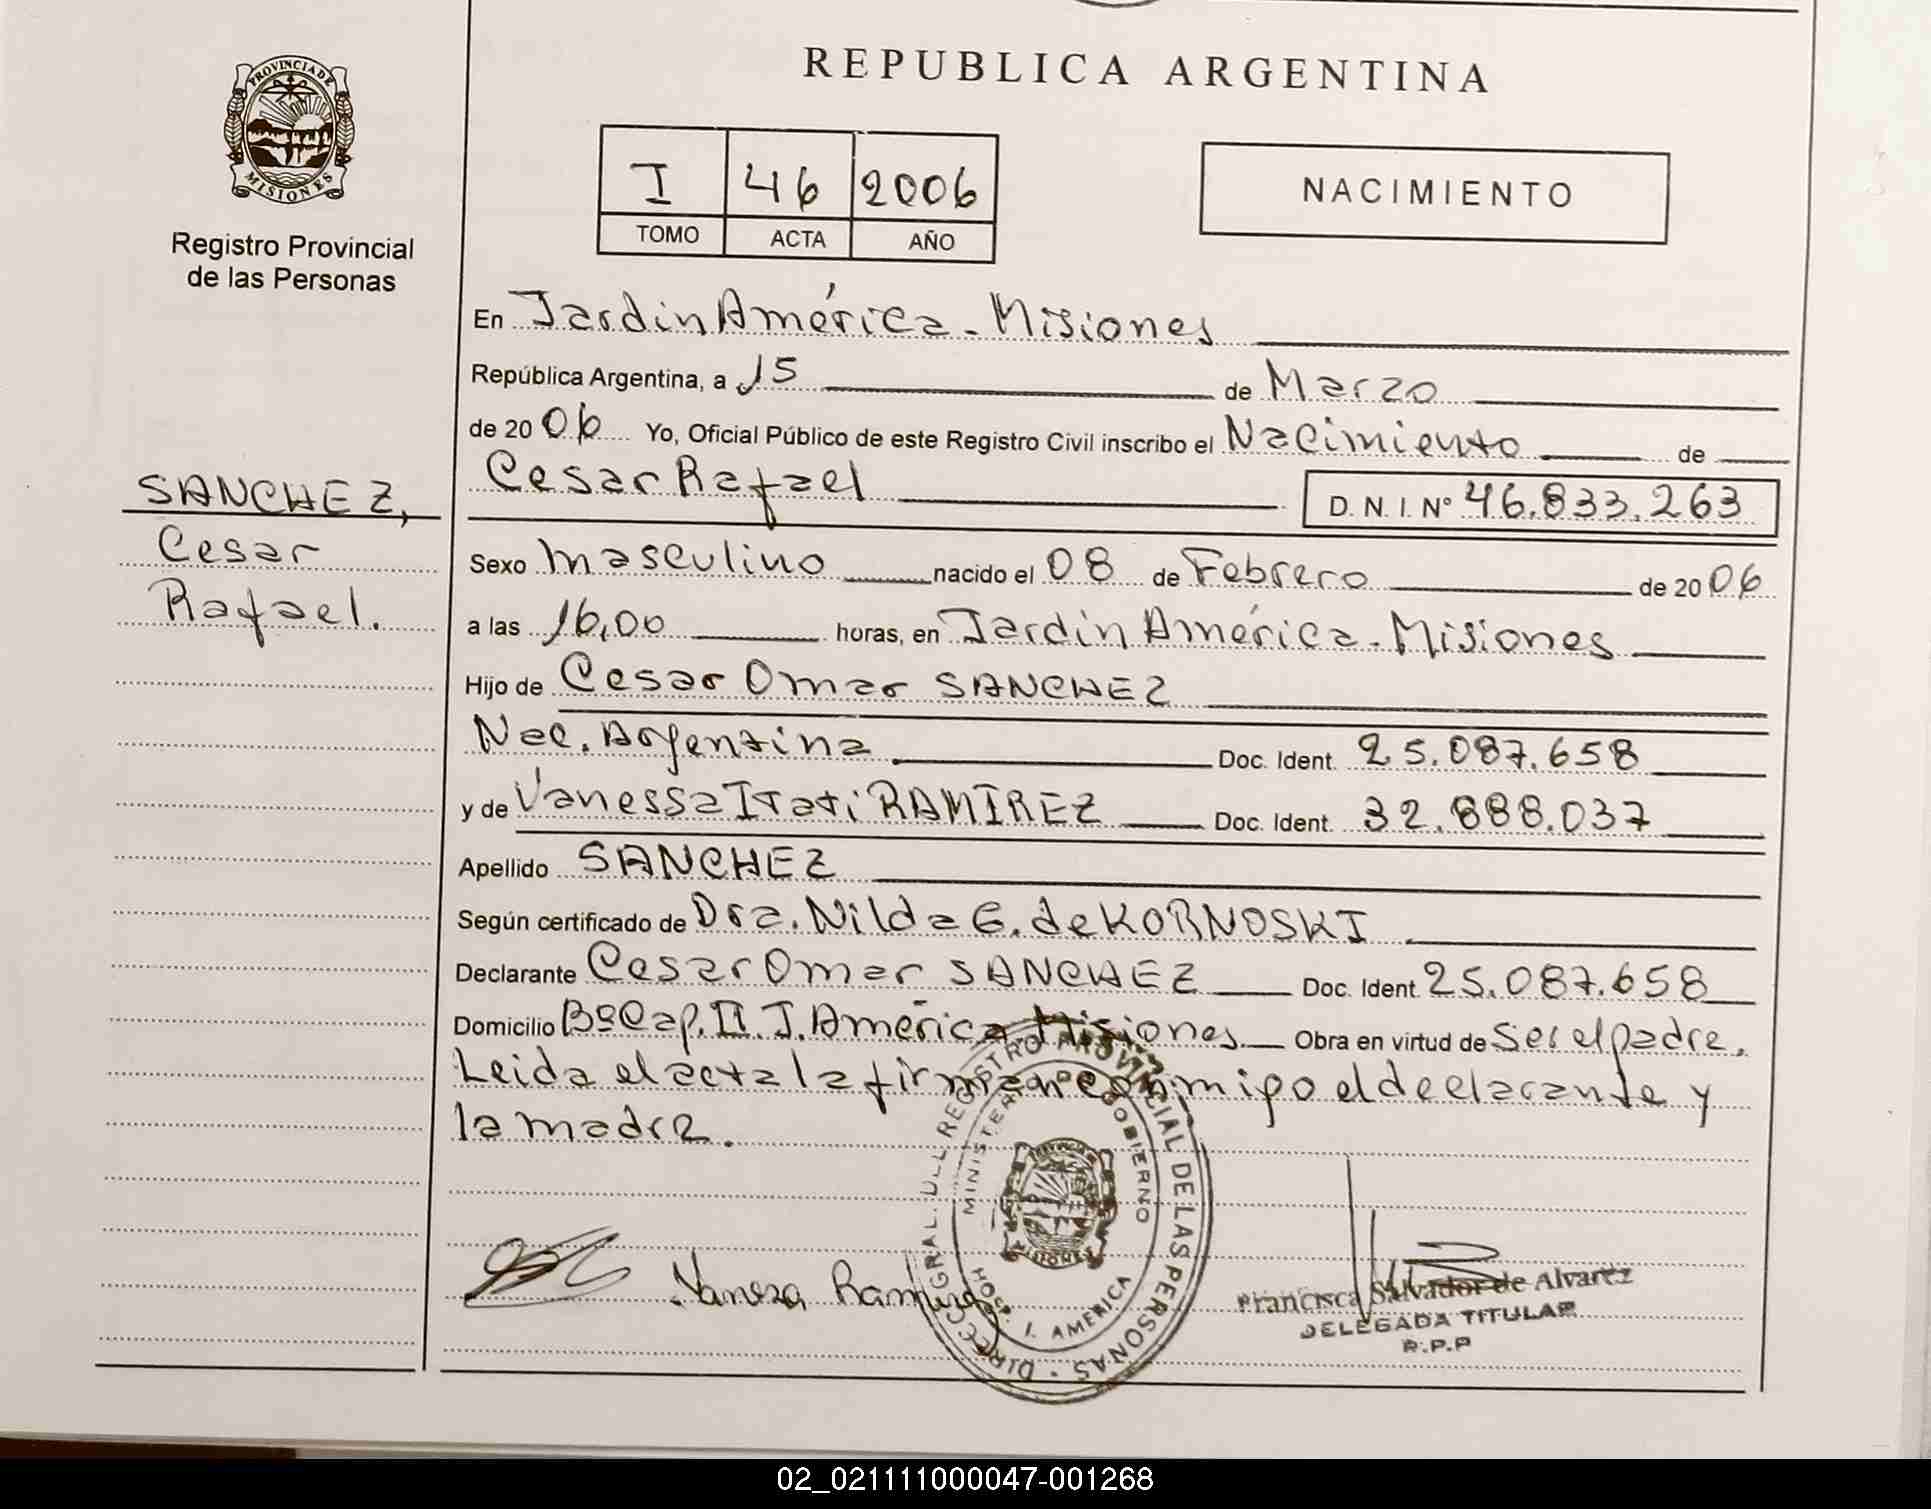 PROVINCIA DE
MISIONES
Registro Provincial
de las Personas
SANCHEZ,
Cesar
Rafael.
REPUBLICA ARGENTINA
I 46 2006
TOMO ACTA AÑO
NACIMIENTO
En Jardin América - Misiones
República Argentina, a 15 de Marzo
de 2006 Yo, Oficial Público de este Registro Civil inscribo el Nacimiento de
Cesar Rafael D. N. I. Nº 46.833.263
Sexo Masculino nacido el 08 de Febrero de 2006
a las 16,00 horas, en Jardin América - Misiones
Hijo de Cesar Omar SANCHEZ
Nac. Argentina Doc. Ident. 25.087.658
y de Vanessa Itati RAMIREZ Doc. Ident. 32.888.037
Apellido SANCHEZ
Según certificado de Dra. Nilda G. de KORNOSKI
Declarante Cesar Omar SANCHEZ Doc. Ident. 25.087.658
Domicilio Bº Cap. II. J. América Misiones Obra en virtud de Ser el padre.
Leida el acta la firman conmigo el declarante y
la madre.
DIREC. GRAL. DEL REGISTRO PROVINCIAL DE LAS PERSONAS
MINISTERIO GOBIERNO
MISIONES
HOSP. J. AMERICA
Vanesa Ramirez
Francisca Salvador de Alvarez
DELEGADA TITULAR
R.P.P
02_021111000047-001268